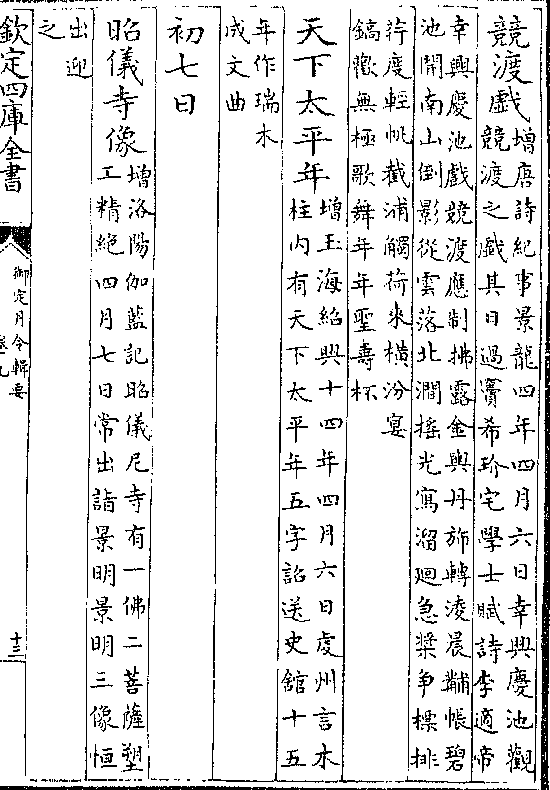 競渡戲增唐詩紀事景龍四年四月六日幸興慶池觀
競渡之戲其日過竇希玠宅學士賦詩李適帝
幸興慶池戲競渡應制拂露金輿丹旂轉淩晨黼帳碧
池開南山倒影從雲落北澗搖光寫溜廻急槳争標排
荇度輕帆截浦觸荷來横汾宴
鎬歡無極歌舞年年聖壽杯
天下太平年增玉海紹興十四年四月六日處州言木
柱内有天下太平年五字詔送史舘十五
年作瑞木
成文曲
初七日
昭儀寺像增洛陽伽藍記昭儀尼寺有一佛二菩薩塑
工精絶四月七日常出詣景明景明三像恒
出迎
之
欽定四庫全書
御定月令輯要
卷九
十三